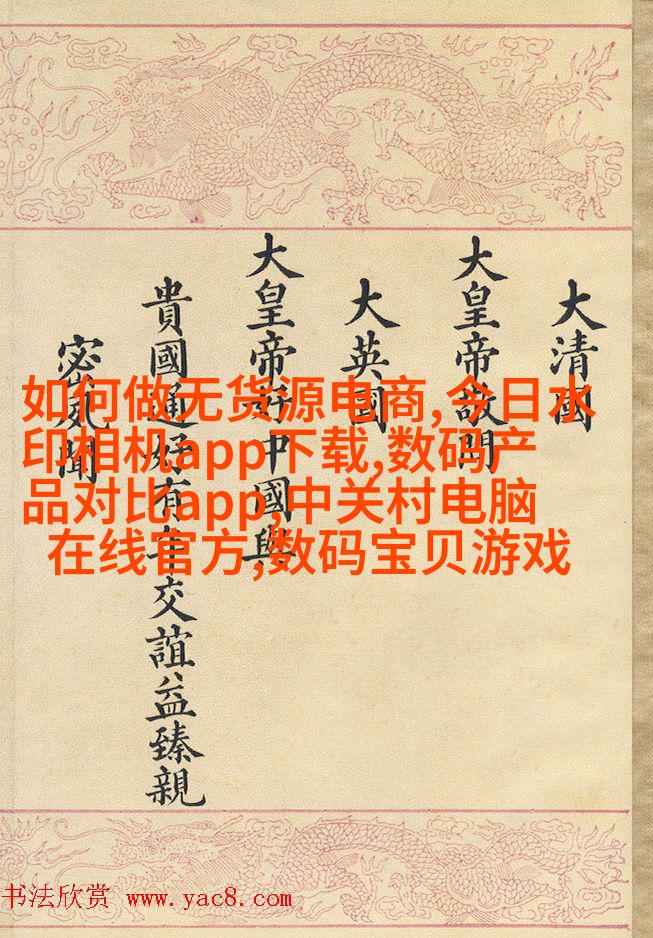 大清國
大皇帝敬問
大英國
大皇帝好中國與
貴國通好有年交誼益臻親
密夙聞
如何做无货源电商,今日水
印相机app下载,数码产
品对比app,中关村电脑
在线官方,数码宝贝游戏
书法欣赏 www.yac8.com